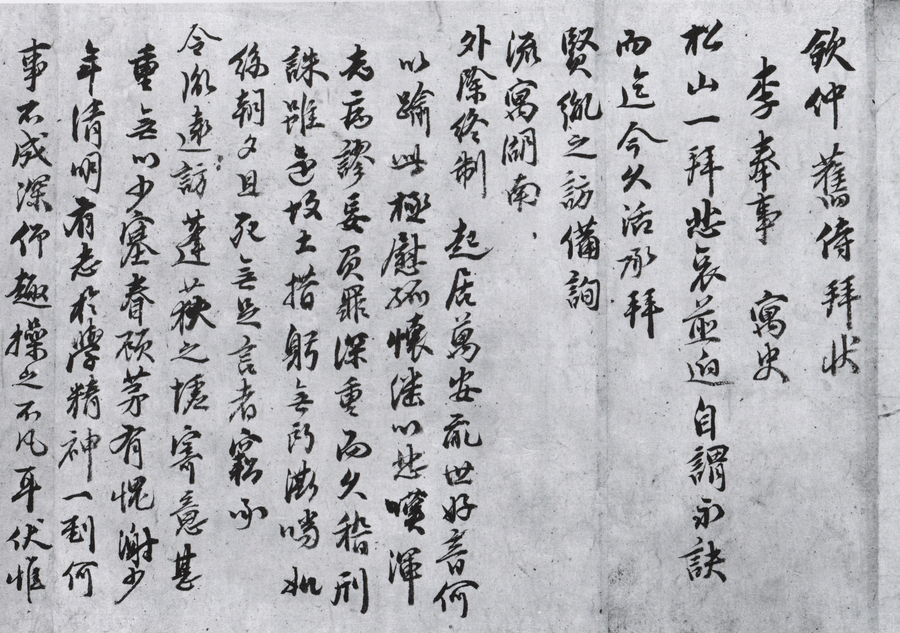 欽仲 舊侍 拜狀
李奉事 寓史
松山一拜悲哀益迫自謂永訣
而迄今久活承拜
賢胤之訪備詢
流寓湖南
外除終制 起居萬安亂世好音何
以踰此極慰孤懷繼以悲嘆渾
老病謬妄負罪深重而久稽刑
誅雖還故土措躬無所澌喘如
絲朝夕且死無足言者竊承
令胤遠訪蓬荻之墟寄意甚
重無以少塞眷顧第有愧謝少
年淸明有志於學精神一到何
事不成深仰趣操之不凡耳伏惟